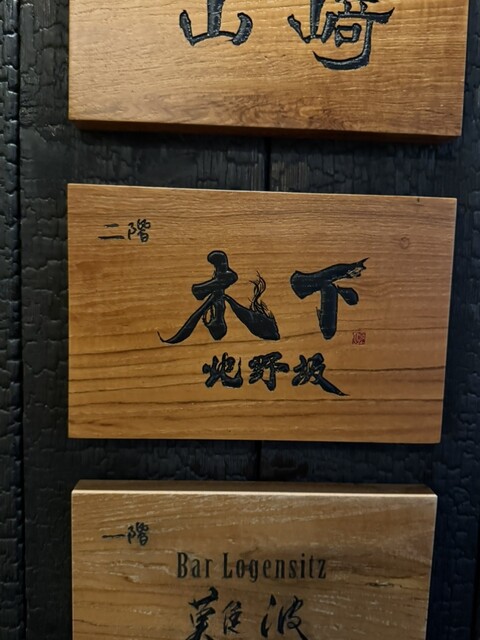 山﨑
二階
木下
炮野坂
一階
Bar Logensitz
難波